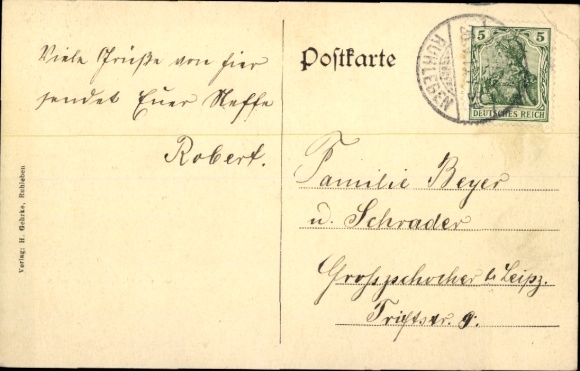 Viele Grüße von hier
sendet Euer Neffe
Robert.
Verlag: H. Gehrke, Ruhleben
Postkarte
RUHLEBEN
5 5
DEUTSCHES REICH
Familie Beyer
u. Schrader
Grosszschocher b. Leipz.
Triftstr. 9.